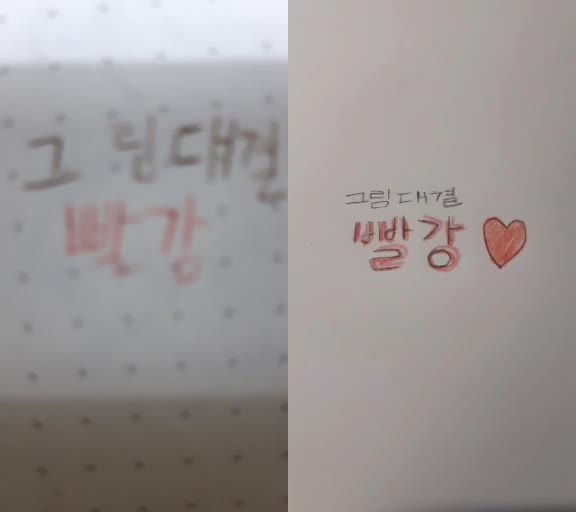 그림대결
빨강
그림대결
빨강